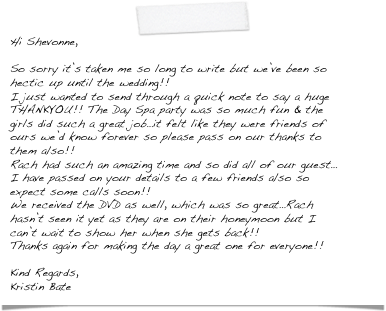 Hi Shevonne,
So sorry it's taken me so long to write but we've been so
hectic up until the wedding!!
I just wanted to send through a quick note to say a huge
THANKYOU!! The Day Spa party was so much fun & the
girls did such a great job...it felt like they were friends of
ours we'd know forever so please pass on our thanks to
them also!!
Rach had such an amazing time and so did all of our guest...
I have passed on your details to a few friends also so
expect some calls soon!!
We received the DVD as well, which was so great...Rach
hasn't seen it yet as they are on their honeymoon but I
can't wait to show her when she gets back!!
Thanks again for making the day a great one for everyone!!
Kind Regards,
Kristin Bate